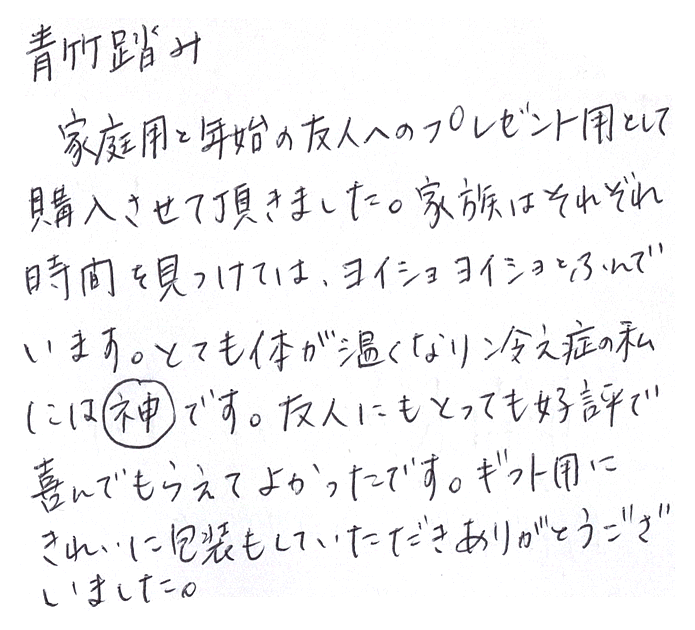 青竹踏み
家庭用と年始の友人へのプレゼント用として
購入させて頂きました。家族はそれぞれ
時間を見つけては、ヨイショヨイショとふんで
います。とても体が温くなり冷え症の私
には神です。友人にもとっても好評で
喜んでもらえてよかったです。ギフト用に
きれいに包装もしていただきありがとうござ
いました。